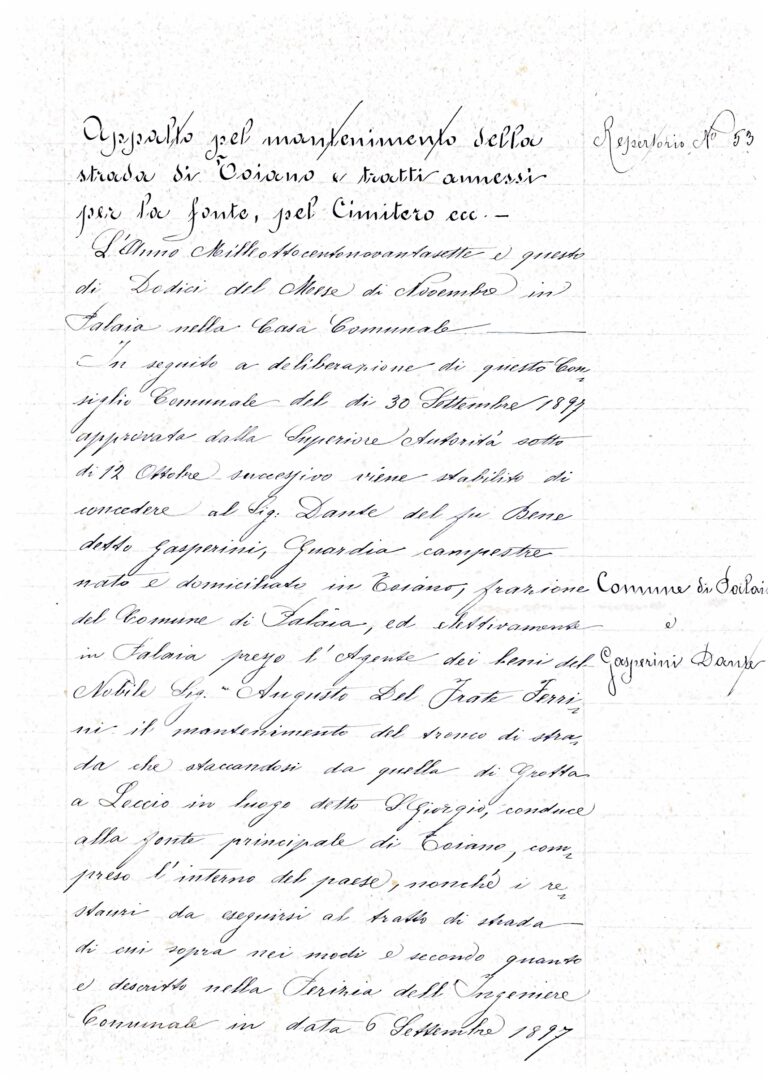 Appalto pel mantenimento della
strada di Toiano e tratti annessi
per la fonte, pel Cimitero ecc. —
Repertorio N° 53
L'Anno Milleottocentonovantasette e questo
di Dodici del Mese di Novembre in
Palaia nella Casa Comunale
In seguito a deliberazione di questo Con-
siglio Comunale del di 30 Settembre 1897
approvata dalla Superiore Autorità sotto
di 12 Ottobre successivo viene stabilito di
concedere al Sig: Dante del fu Bene
detto Gasperini, Guardia campestre
nato e domiciliato in Toiano, frazione
del Comune di Palaia, ed elettivamente
in Palaia presso l'Agente dei beni del
Nobile Sig. Augusto Del Frate Ferri-
ni il mantenimento del tronco di stra-
da che staccandosi da quella di Grotta
a Leccio in luogo detto S Giorgio, conduce
alla fonte principale di Toiano, com-
preso l'interno del paese, nonchè i re-
stauri da eseguirsi al tratto di strada
di cui sopra nei modi e secondo quanto
e descritto nella Perizia dell'Ingeniere
Comunale in data 6 Settembre 1897
Comune di Palaia
e
Gasperini Dante